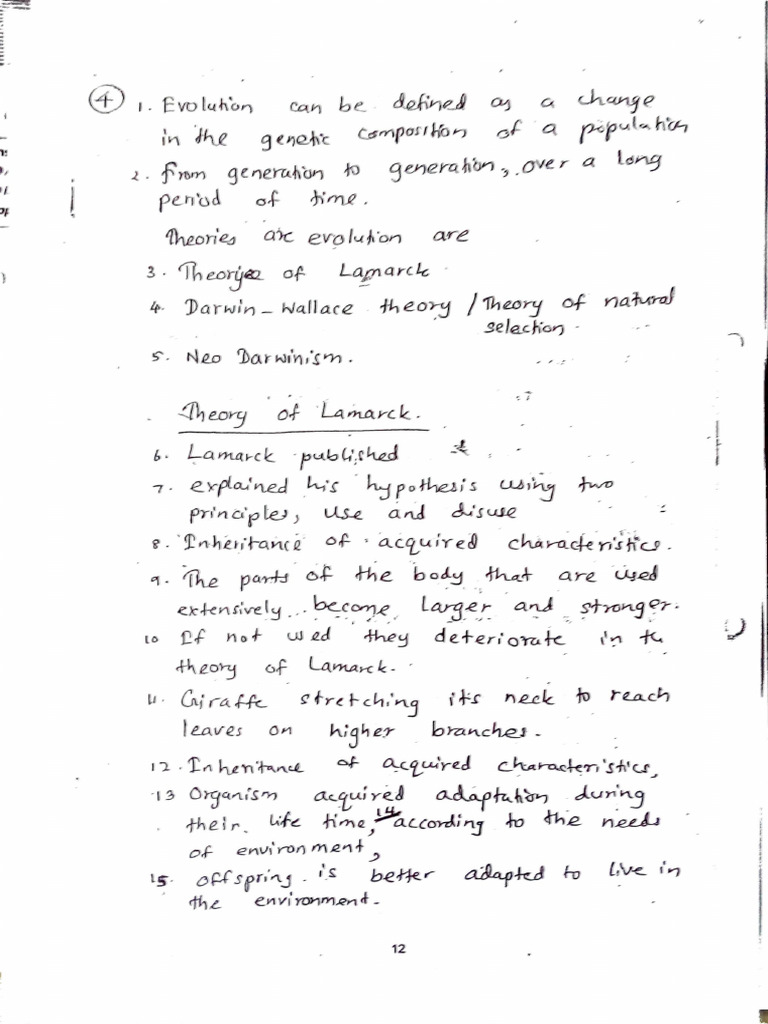 4 1. Evolution can be defined as a change
in the genetic composition of a population
2. from generation to generation, over a long
period of time.
Theories are evolution are
3. Theory of Lamarck
4. Darwin - Wallace theory / Theory of natural
selection.
5. Neo Darwinism.
Theory of Lamarck.
6. Lamarck published
7. explained his hypothesis using two
principles, use and disuse
8. Inheritance of acquired characteristics.
9. The parts of the body that are used
extensively become larger and stronger.
10 If not used they deteriorate in the
theory of Lamarck.
11. Giraffe stretching its neck to reach
leaves on higher branches.
12. Inheritance of acquired characteristics,
13 Organism acquired adaptation during
their life time, 14 according to the needs
of environment,
15. offspring is better adapted to live in
the environment.
12